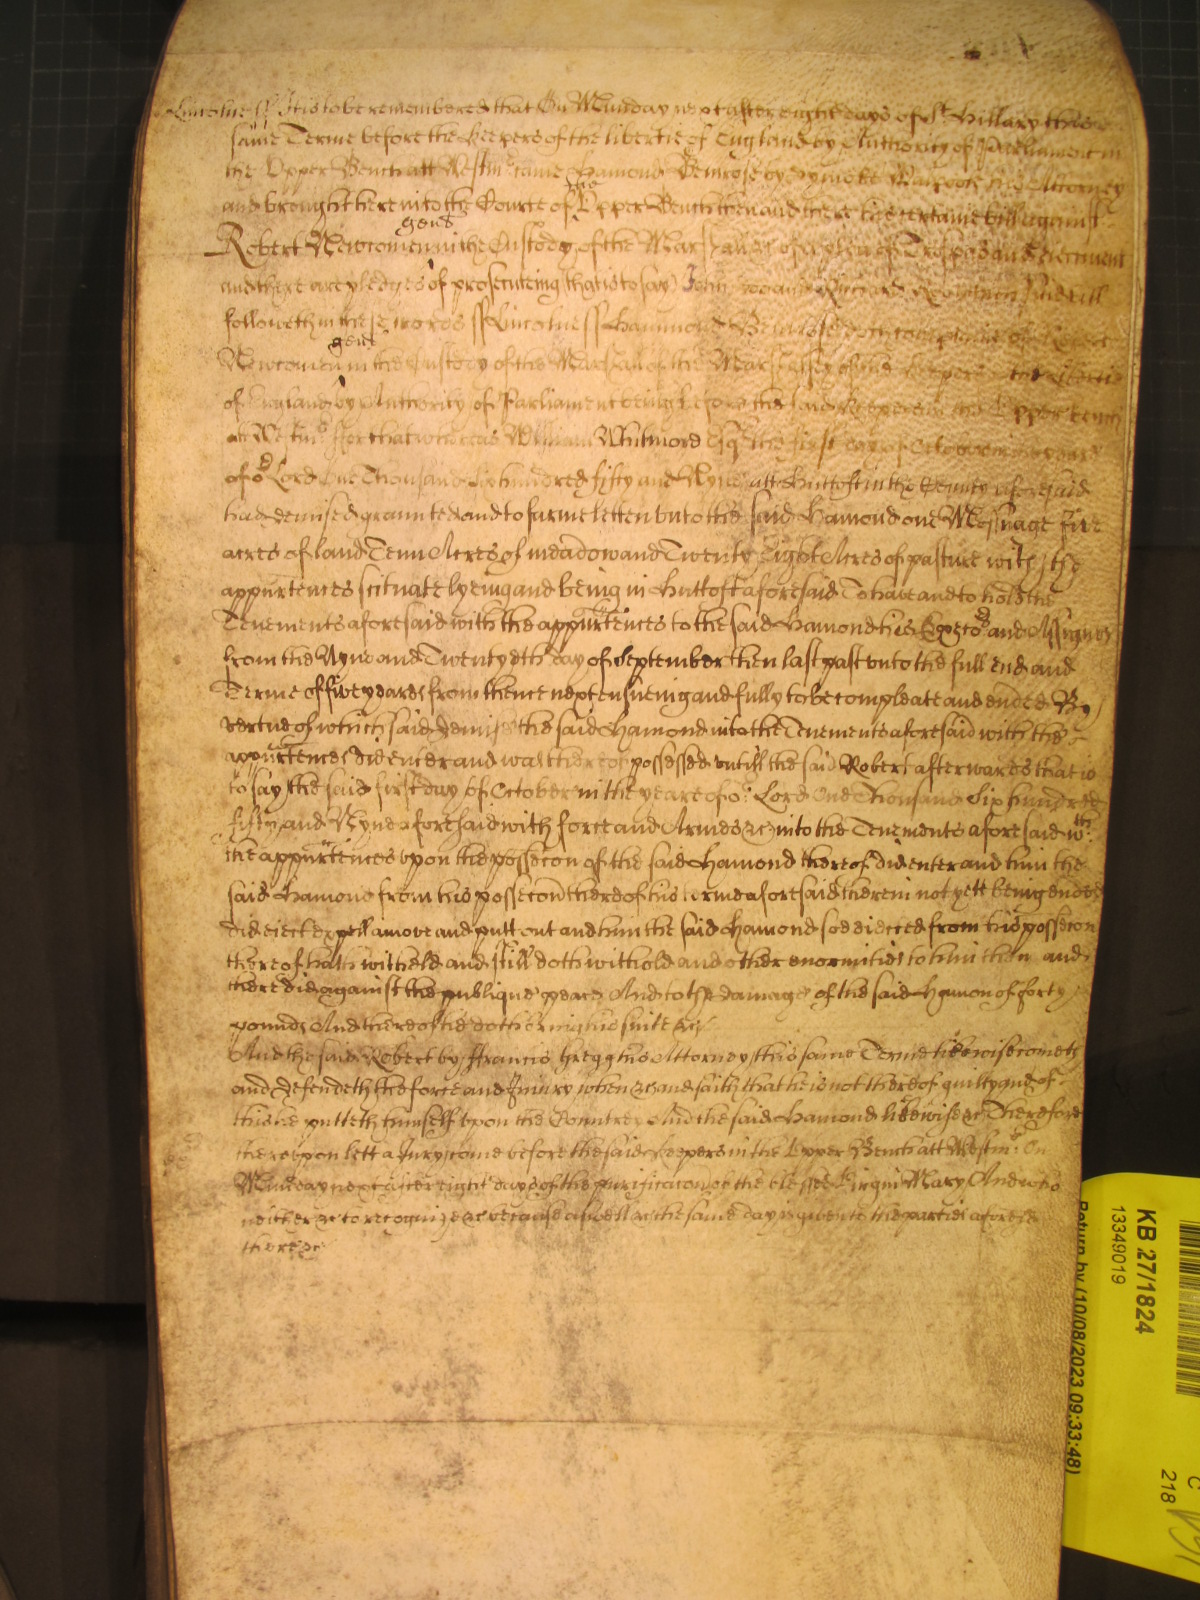 Lincolne ss It is to be remembered that On Munday next after eight days of St Hillary this
same Terme before the keepers of the libertie of England by Authority of Parliament in
the Upper Bench att Westmr came Hamond Bemrose by his Attorney
and brought here into the Court of the Upper Bench then and there his certaine bill against
Robert Newcomen gent in the Custody of the Marshall &c of a plea of Trespas and Eiectment
and there are pledges of prosecuteing that is to say John Doo and Richard Roo which said bill
followeth in these words ss Lincolne ss Hammond Bemrose complaines of Robert
Newcomen gent in the Custody of the Marshall of the Marshalsey of the keepers of the libertie
of England by Authority of Parliament being before the said keepers in the Upper bench
att Westmr ffor that whereas William Whitmord Esqr the first day of October in the yeare
of or Lord One Thousand Six hundred fifty and Nyne att Huttoft in the County aforesaid
had demised graunted and to farme letten unto the said Hamond one Messuage five
acres of land Tenn Acres of meadow and Twenty Eight Acres of pasture with the
appurtences scituate lyeing and being in Huttoft aforesaid To have and to hold the
Tenements aforesaid with the appurtences to the said Hamond his Exectors and Assignes
from the Nyne and Twentyeth day of September then last past unto the full end and
Terme of five yeares from thence next ensueing and fully to be compleate and ended By
vertue of which said demise the said Hamond into the Tenements aforesaid with the
appurtences did enter and was thereof possessed untill the said Robert afterwards that is
to say the said first day of October in the yeare of or Lord One Thousand Six hundred
fifty and Nyne aforesaid with force and Armes &c into the Tenements aforesaid wth
the appurtences upon the possecon of the said Hamond thereof did enter and him the
said Hamond from his possecon thereof his terme aforesaid therein not yett being ended
did eiect expell amove and putt out and him the said Hamond soe eiected from his possecon
thereof hath witheld and still doth withold and other enormities to him then and
there did against the publique peace And to the damage of the said Hamon of forty
pounds And thereof he doth bring his suite &c
And the said Robert by ffrancis Gregg his Attorney this same Terme likewise cometh
and defendeth the force and Iniury when &c and saith that he is not thereof guilty and of
this he putteth himself upon the Countrey And the said Hamond likewise &c Therefore
thereupon lett a Jury come before the said keepers in the Upper Bench att Westmr On
Munday next after eight days of the purificacon of the blessed Virgin Mary And who
neither &c to recognize &c because aswell &c the same day is given to the parties aforesd
there &c
KB 27/1824
13349019
Return by (10/08/2023 09:33:48)
C
218